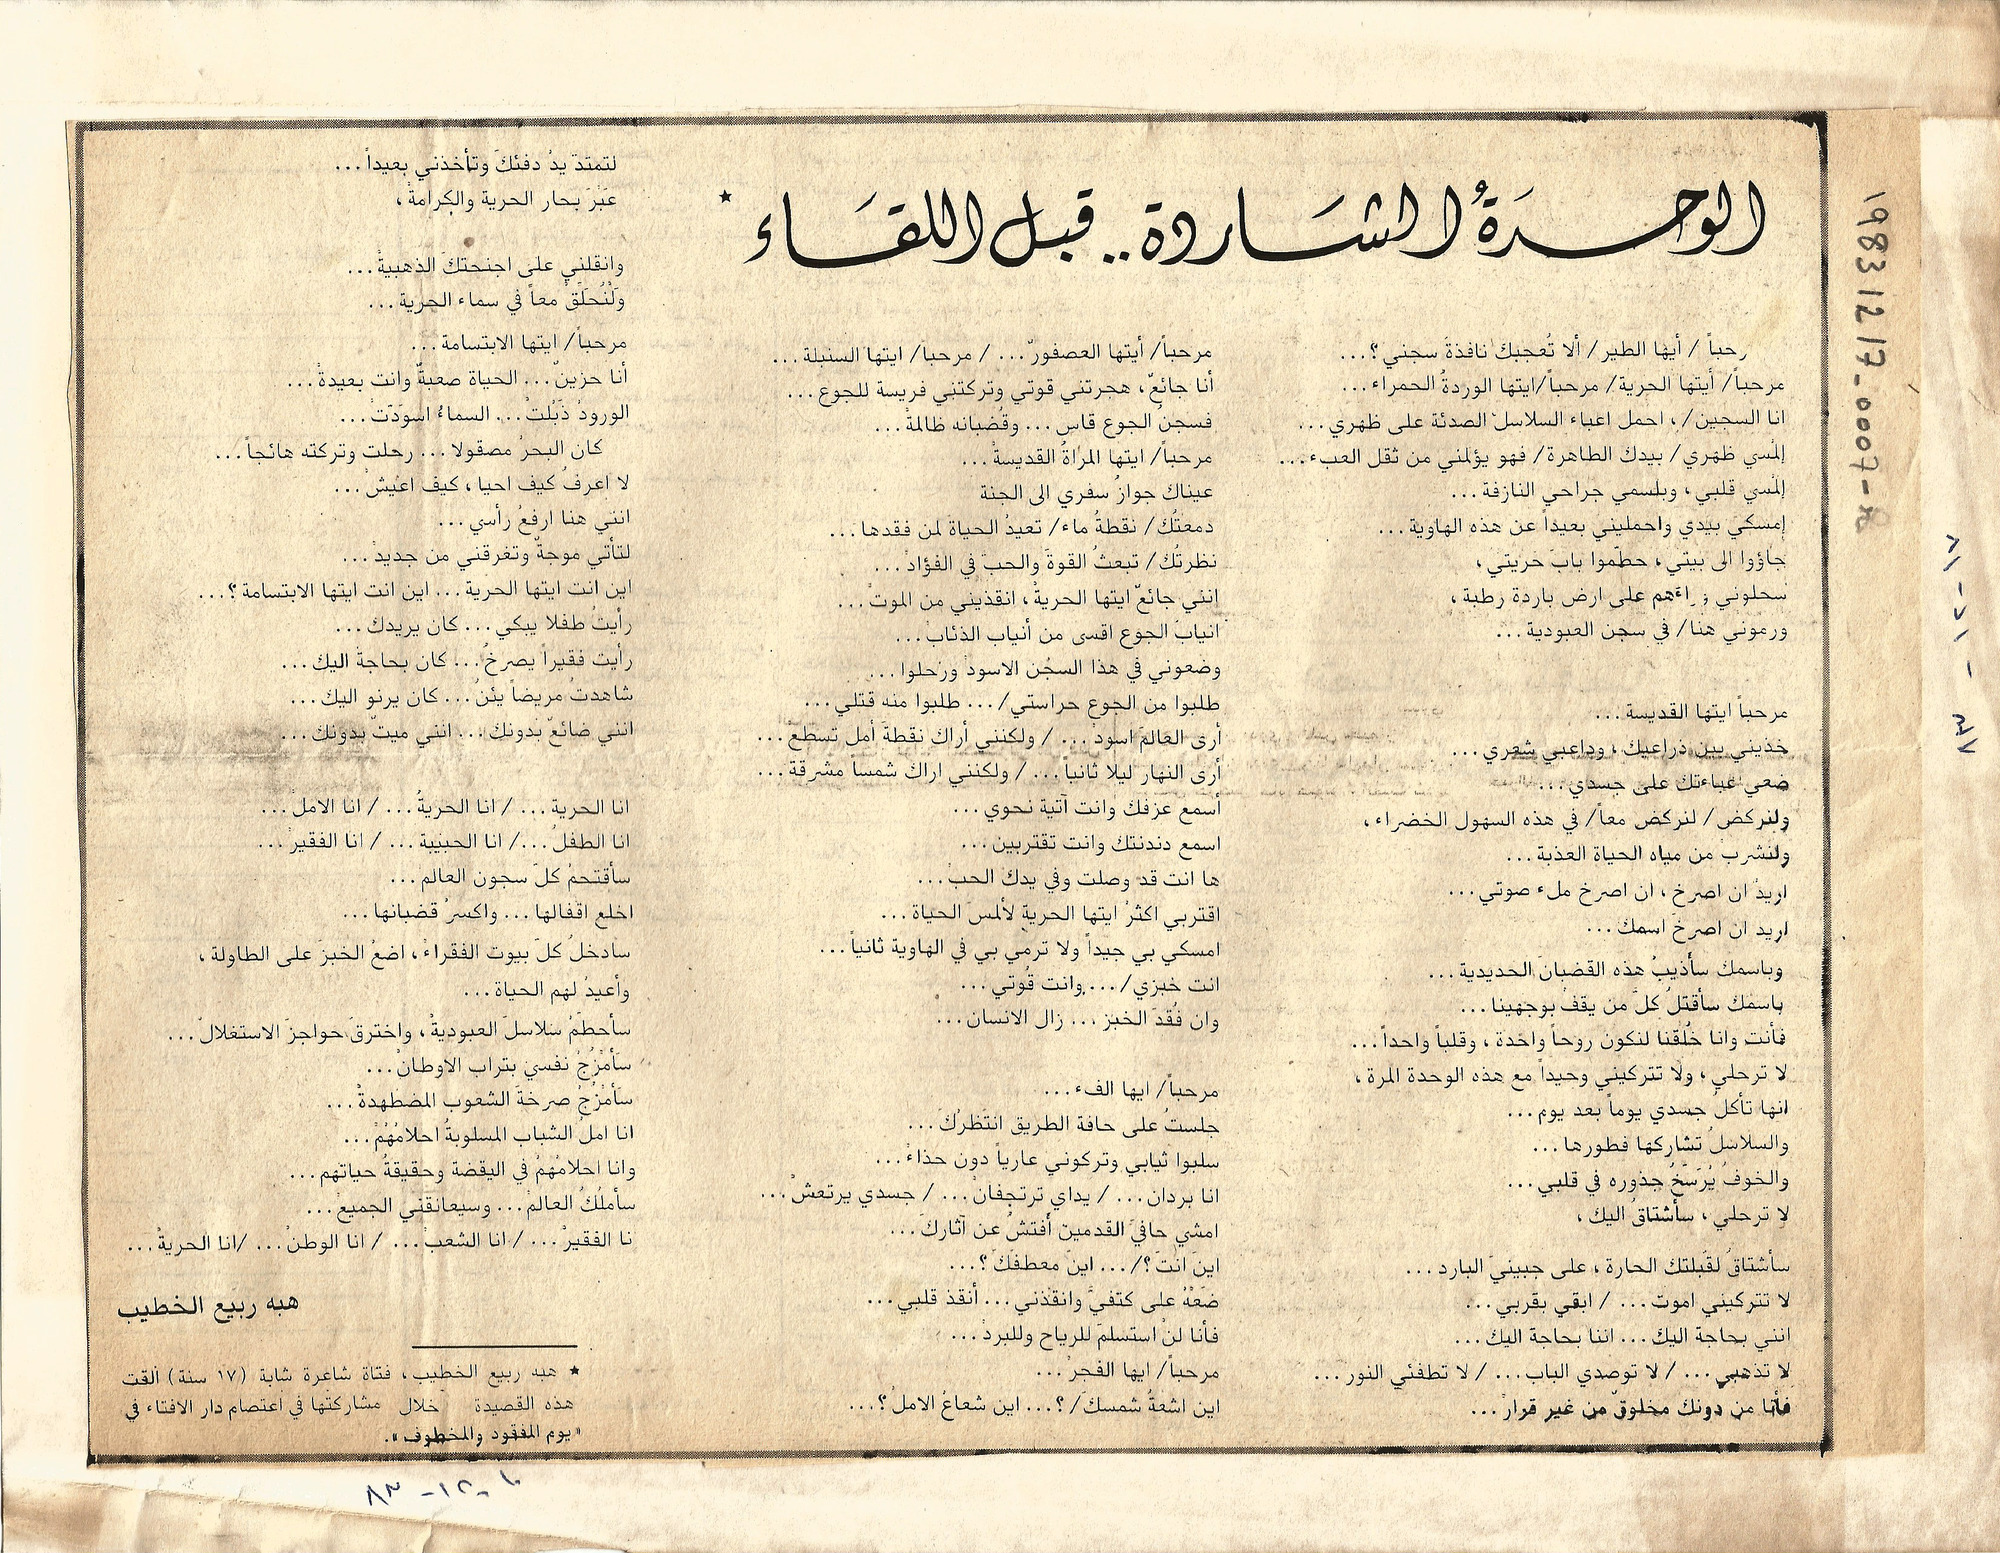 الوحدةُ الشاردة.. قبل اللقاء ★
رحباً / أيها الطير/ ألا تُعجبك نافذةُ سجني؟...
مرحباً/ أيتها الحرية/ مرحباً/ايتها الوردةُ الحمراء...
انا السجين/، احمل اعباء السلاسل الصدئة على ظهري...
إلمسي ظهري/ بيدك الطاهرة/ فهو يؤلمني من ثقل العبء...
إلمسي قلبي، وبلسمي جراحي النازفة...
إمسكي بيدي واحمليني بعيداً عن هذه الهاوية...
جاؤوا الى بيتي، حطّموا بابَ حريتي،
سحلوني على ارض باردة رطبة،
ورموني هنا/ في سجن العبودية...
مرحباً ايتها القديسة...
خذيني بين ذراعيك، وداعبي شعري...
ضعي عباءتك على جسدي...
ولنركض/ لنركض معاً/ في هذه السهول الخضراء،
ولنشرب من مياه الحياة العذبة...
اريدُ ان اصرخ، ان اصرخ ملء صوتي...
اريد ان اصرخَ اسمك...
وباسمك سأذيبُ هذه القضبانَ الحديدية...
باسمك سأقتلُ كلَّ من يقفُ بوجهينا...
فأنت وانا خُلقنا لنكون روحاً واحدة، وقلباً واحداً...
لا ترحلي، ولا تتركيني وحيداً مع هذه الوحدة المرة،
انها تأكلُ جسدي يوماً بعد يوم...
والسلاسلُ تشاركها فطورها...
والخوفُ يُرَسّخُ جذوره في قلبي...
لا ترحلي، سأشتاقُ اليك،
سأشتاقُ لقبلتك الحارة، على جبينيَ البارد...
لا تتركيني اموت... / ابقي بقربي...
انني بحاجة اليك... اننا بحاجة اليك...
لا تذهبي... / لا توصدي الباب... / لا تطفئي النور...
فأنا من دونك مخلوقٌ من غير قرار...
مرحباً/ أيتها العصفورّ... / مرحبا/ ايتها السنبلة...
أنا جائعٌ، هجرتني قوتي وتركتني فريسة للجوع...
فسجن الجوع قاسٍ... وقُضبانه ظالمةْ...
مرحباً/ ايتها المراةُ القديسةْ...
عيناك جوازُ سفري الى الجنة
دمعتُك/ نقطةُ ماء/ تعيدُ الحياة لمن فقدها...
نظرتك/ تبعثُ القوةَ والحبَ في الفؤاد...
انني جائعٌ ايتها الحريةُ، انقذيني من الموت...
انيابَ الجوع اقسى من أنياب الذئاب...
وضعوني في هذا السجن الاسود ورحلوا...
طلبوا من الجوع حراستي/... طلبوا منه قتلي...
أرى العالمَ اسود... / ولكنني أراك نقطةَ أمل تسطع...
أرى النهار ليلا ثانياً... / ولكنني اراك شمساً مشرقة...
أسمع عزفك وانت آتية نحوي...
اسمع دندنتك وانت تقتربين...
ها انت قد وصلت وفي يدك الحبْ...
اقتربي اكثرْ ايتها الحرية لألمسَ الحياة...
امسكي بي جيداً ولا ترمي بي في الهاوية ثانياً...
انت خبزي/... وانت قُوتي...
وان فُقدَ الخبز... زال الانسان...
مرحباً/ ايها الفء...
جلستُ على حافة الطريق انتظرُكَ...
سلبوا ثيابي وتركوني عارياً دون حذاءْ...
انا بردان... / يداي ترتجفانْ... / جسدي يرتعشْ...
امشي حافيَ القدمين أفتشُ عن آثاركَ...
اينَ انتَ؟/... اينَ معطفكَ؟...
ضعْهُ على كتفيَّ وانقذني... أنقذ قلبي...
فأنا لنْ استسلمَ للرياح وللبردْ...
مرحباً/ ايها الفجرْ...
اين اشعةُ شمسكَ/؟... اين شعاعُ الامل؟...
لتمتدَ يدُ دفئكَ وتأخذني بعيداً...
عَبْرَ بحار الحرية والكرامةْ،
وانقلني على اجنحتكَ الذهبيةْ...
وَلْنُحَلّقْ معاً في سماء الحرية...
مرحباً/ ايتها الابتسامة...
أنا حزينٌ... الحياة صعبةٌ وانت بعيدةْ...
الورودُ ذَبُلتْ... السماءُ اسودَتْ...
كان البحرُ مصقولا... رحلت وتركته هائجاً...
لا اعرفُ كيف احيا، كيف اعيشْ...
انني هنا ارفعُ رأسي...
لتأتي موجةٌ وتغرقني من جديدْ...
اين انت ايتها الحرية... اين انت ايتها الابتسامة؟...
رأيتُ طفلا يبكي... كان يريدك...
رأيت فقيراً يصرخُ... كان بحاجة اليك...
شاهدتُ مريضاً يئنُ... كان يرنو اليك...
انني ضائعٌ بدونك... انني ميتٌ بدونك...
انا الحرية... / انا الحريةُ... / انا الاملْ...
انا الطفلُ.../ انا الحبيبة... / انا الفقيرْ...
سأقتحمُ كلَ سجون العالم...
اخلع اقفالها... واكسرُ قضبانها...
سادخلُ كلَ بيوت الفقراءْ، اضعُ الخبزَ على الطاولة،
وأعيدُ لهم الحياة...
سأحطمُ سلاسلَ العبوديةْ، واخترقُ حواجزَ الاستغلالْ...
سَأمْزُجُ نفسي بتراب الاوطانْ...
سَأمْزُجُ صرخةَ الشعوب المضطهدةْ...
انا املُ الشباب المسلوبةُ احلامُهُمْ...
وانا احلامُهُمْ في اليقضة وحقيقةُ حياتهم...
سأملُكُ العالمْ... وسيعانقني الجميعْ...
نا الفقيرْ... / انا الشعبْ... / انا الوطنْ... /انا الحريةْ...
هبه ربيع الخطيب
★ هبه ربيع الخطيب، فتاة شاعرة شابة (١٧ سنة) القت
هذه القصيدة خلال مشاركتها في اعتصام دار الافتاء في
«يوم المفقود والمخطوف».
19831217-0007-
٨٣ - ١٢ - ١٧
٨٣ -١٢-